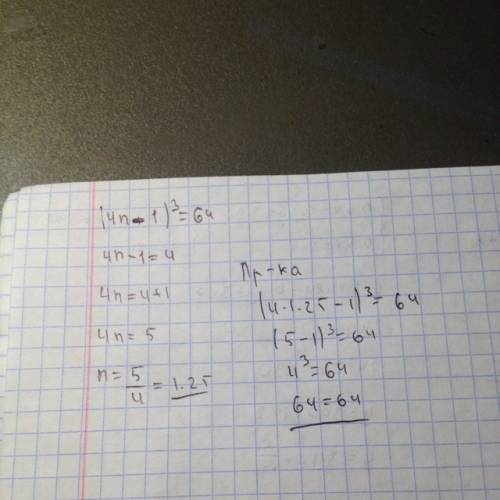 (4n-1)³=64
4n-1=4
4n=4+1
4n=5
n=5/4=1.25
Пр-ка
(4·1.25-1)³=64
(5-1)³=64
4³=64
64=64